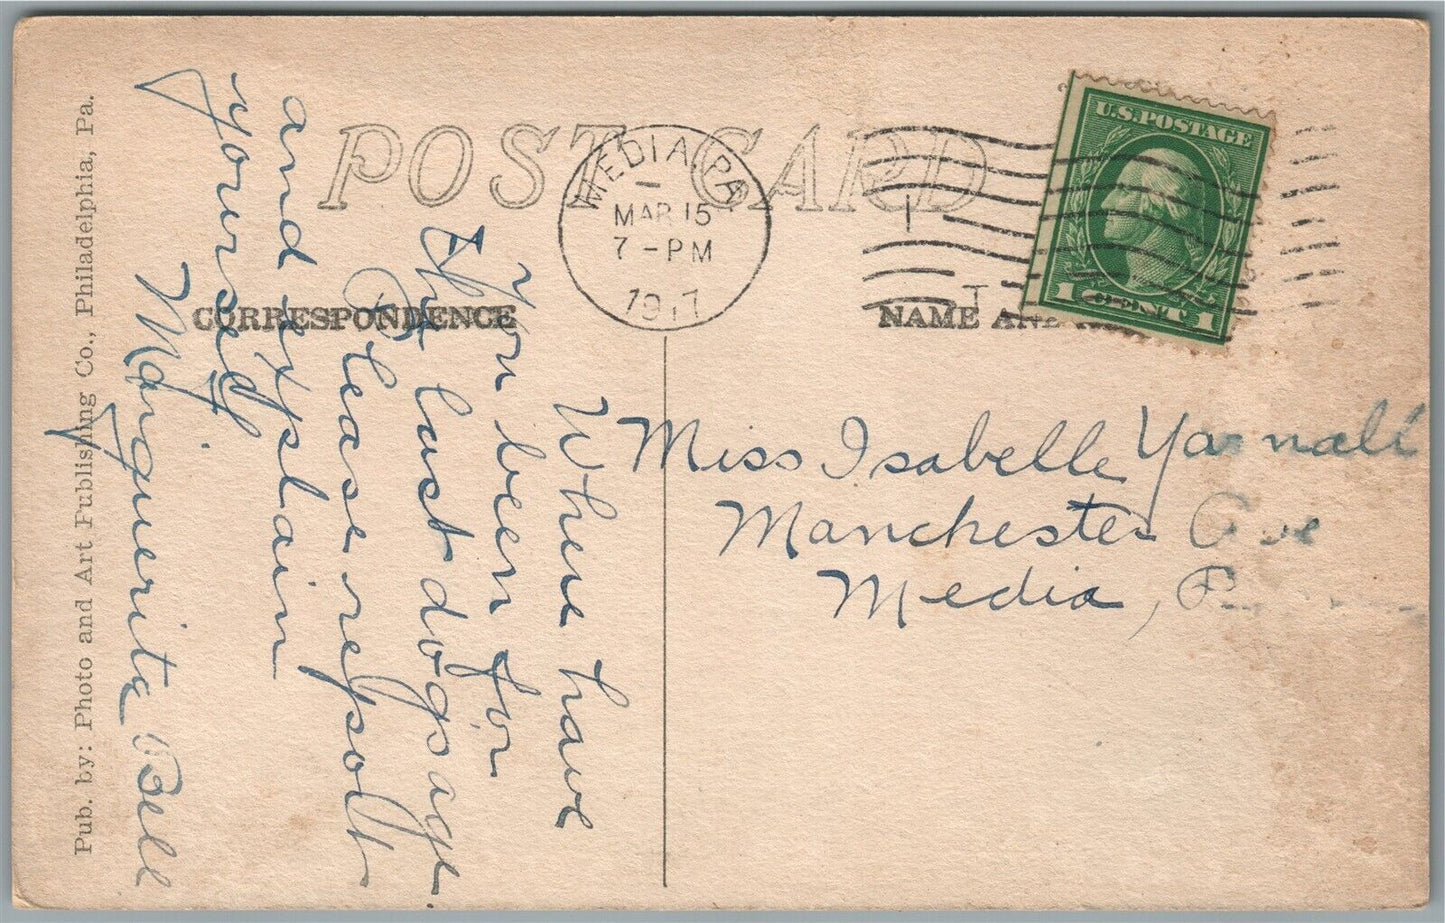 POST CARD
MEDIA, PA
MAR 15
7-PM
1917
U.S. POSTAGE
1 CENT 1
CORRESPONDENCE
NAME AND
Where have
You been for
the last dogs age.
Please repsott
and explain
yourself
Marguerita Bell
Miss Isabelle Yarnall
Manchester Ave
Media,
Pub. by: Photo and Art Publishing Co., Philadelphia, Pa.